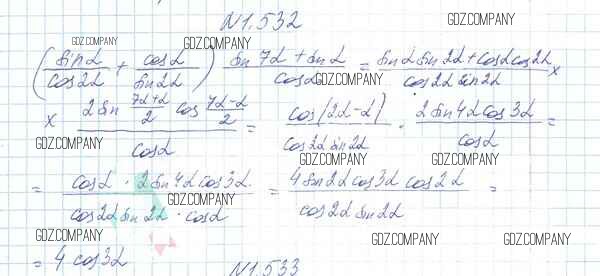 N1.532
GDZ.COMPANY
GDZ.COMPANY GDZ.COMPANY
(sinα/cos2α + cosα/sin2α) sin7α + sinα/cosα = sinα sin2α + cosα cos2α/cos2α sin2α ×
GDZ.COMPANY
× 2 sin 7α+α/2 cos 7α-α/2/cosα = cos(2α-α)/cos2α sin2α · 2 sin4α cos3α/cosα =
GDZ.COMPANY GDZ.COMPANY
GDZ.COMPANY GDZ.COMPANY
= cosα · 2 sin4α cos3α/cos2α sin2α · cosα = 4 sin2α cos3α cos2α/cos2α sin2α =
GDZ.COMPANY
GDZ.COMPANY GDZ.COMPANY GDZ.COMPANY
= 4 cos3α
N1.533